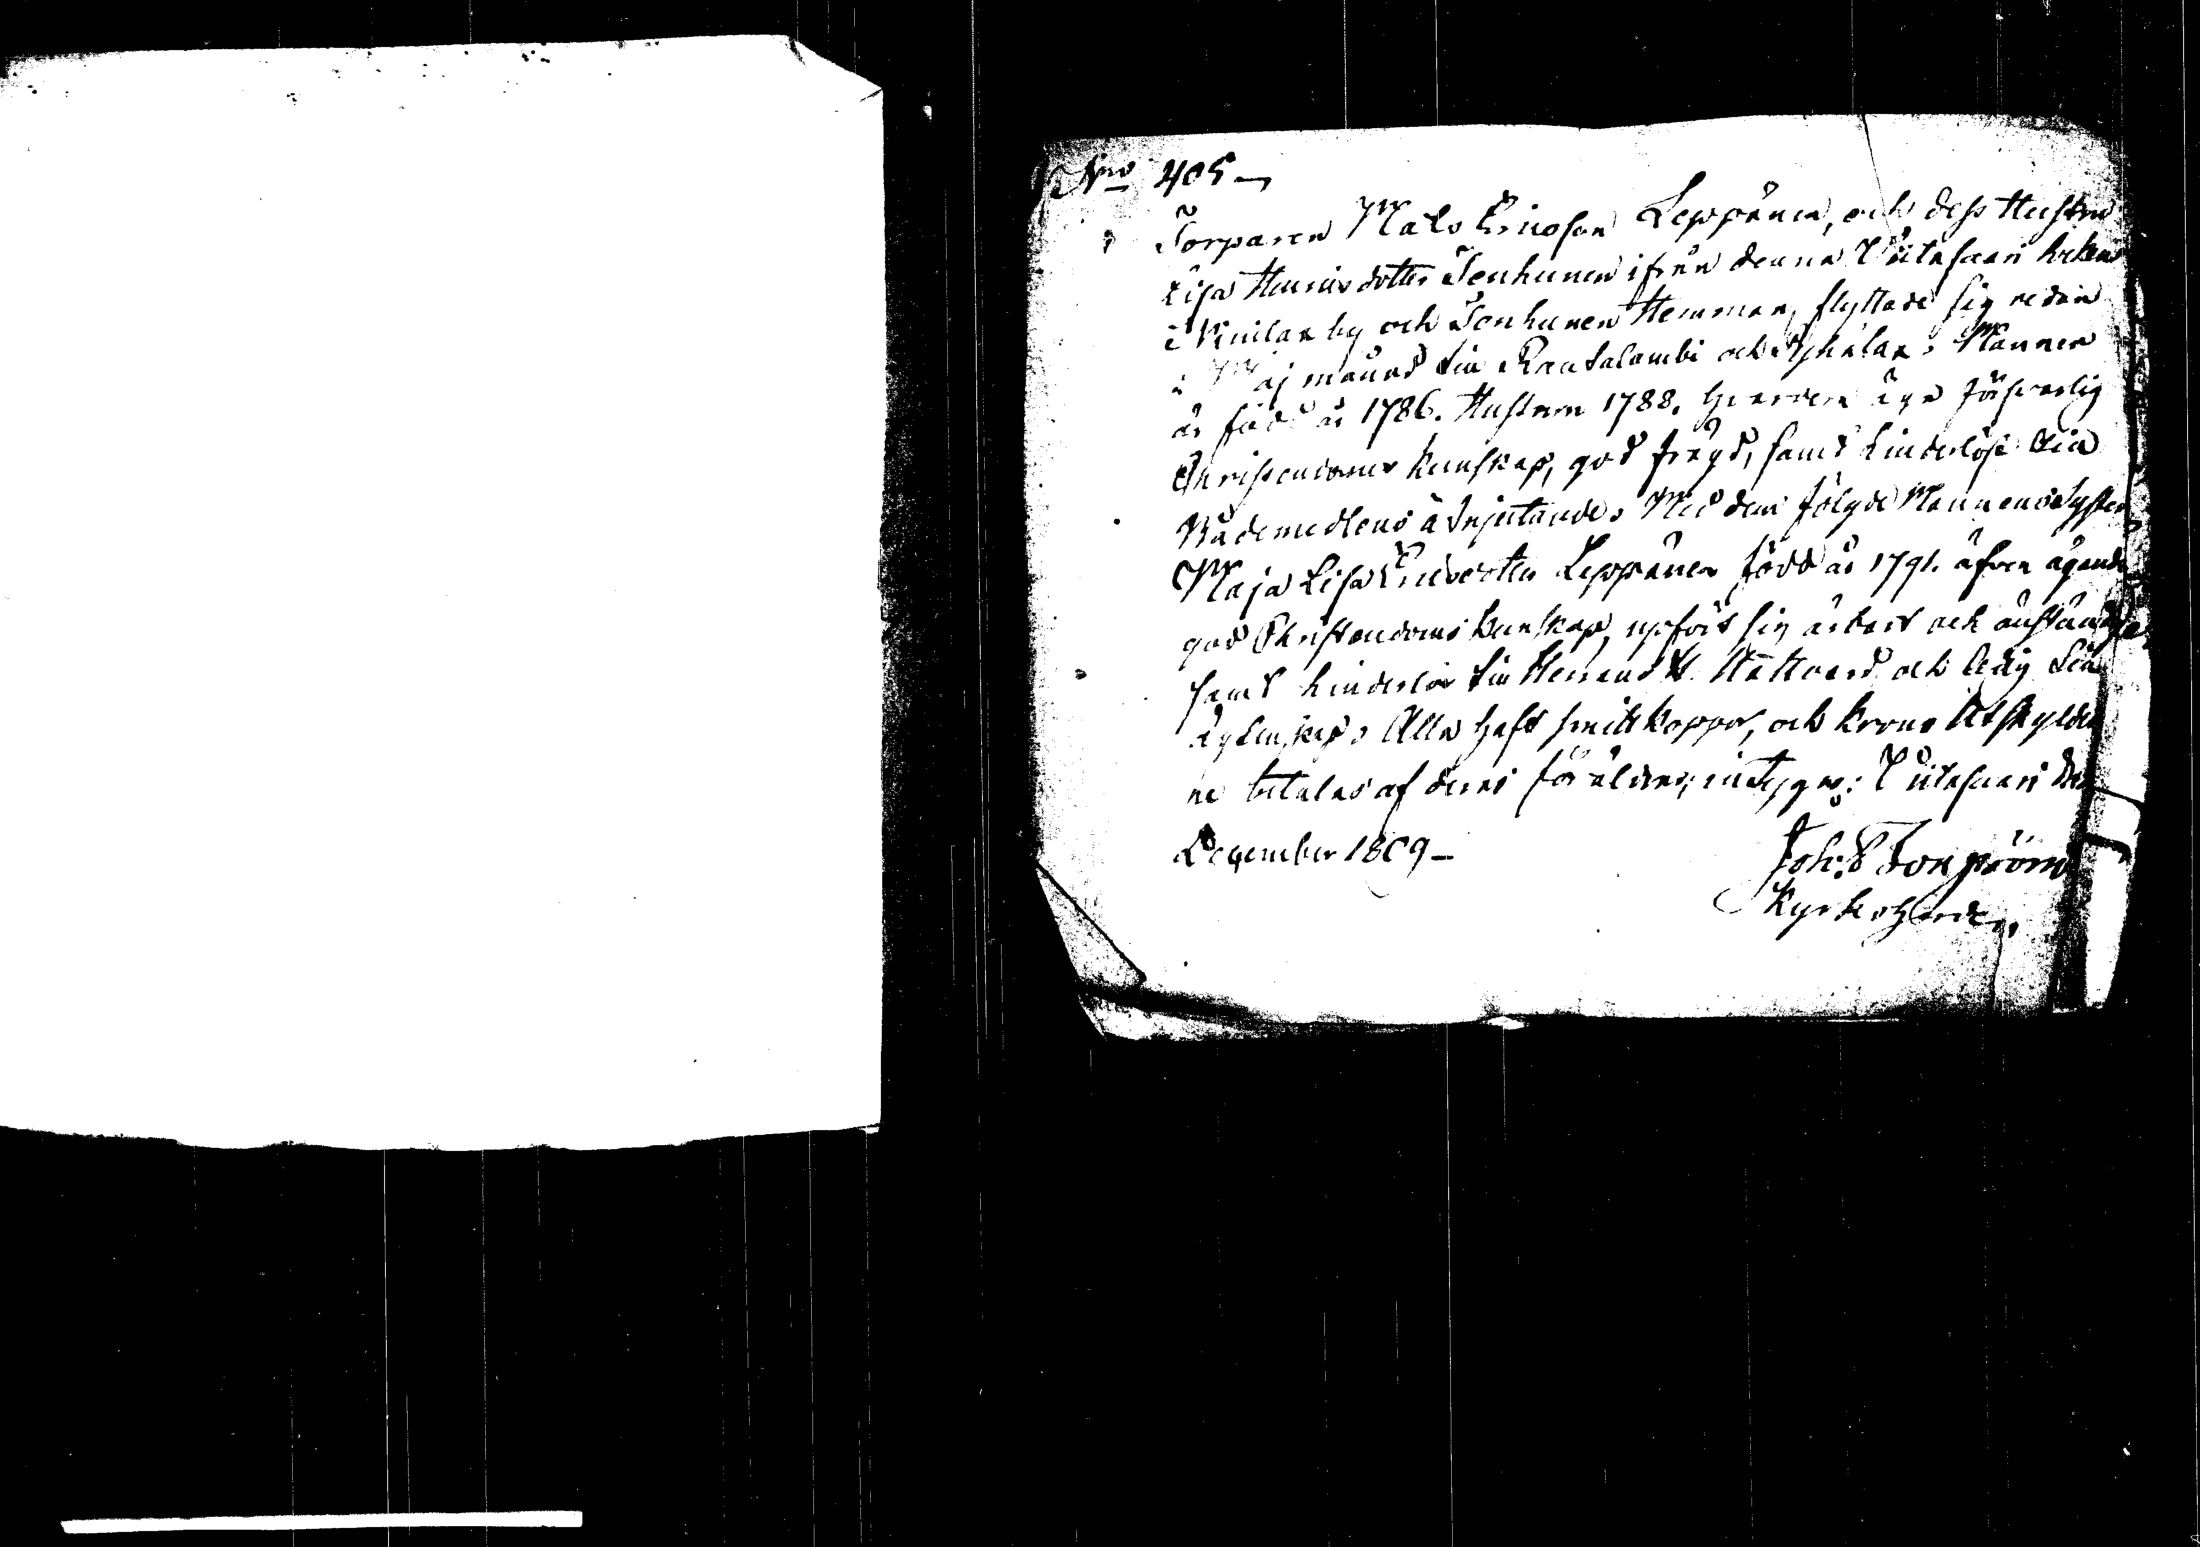 No 405
Torparen Mats Ericsson Leppänen, och dess Hustru
Lisa Henricsdotter Tenhunen ifrån denna Viitasaari Sokn
i Niinilax by och Tenhunen Hemman, flyttade sig redan
i Maj månad til Rautalambi och Kjkälax. Mannen
är född år 1786. Hustrun 1788. Hvardera äga försvarlig
Christendoms kunskap, god frägd, samt hinderlöse til
Nådemedlens åtnjutande. Med dem fölgde Mannens Syster
Maja Lisa Ericsdotter Leppänen född år 1791. äfven ägande
god Christendoms kunskap, upfört sig ärbart och anständigt
samt hinderlös til Herrans H. Nattvard och ledig til
ägtenskap. Alla haft smittkoppor, och krono Utskylder
ne betalas af deras föräldrar; intygar: Viitasaari den
December 1809
Joh:
Kyrkoherde